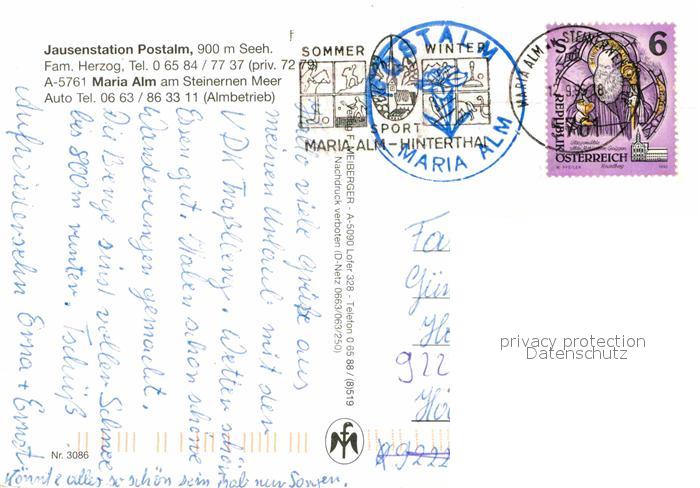 Jausenstation Postalm, 900 m Seeh.
Fam. Herzog, Tel. 0 65 84 / 77 37 (priv. 72 79)
A-5761 Maria Alm am Steinernen Meer
Auto Tel. 06 63 / 86 33 11 (Almbetrieb)
SOMMER WINTER
SPORT
MARIA ALM - HINTERTHAL
POSTALM
MARIA ALM
6
REPUBLIK
ÖSTERREICH
viele Grüße aus
meinem Urlaub mit dem
VDK . Wetter schön
Essen gut. Haben schon schöne
Wanderungen gemacht.
Die Berge sind voller Schnee
bis 800 m runter. Tschüß
Aufwiedersehn Erna + Ernst
Könnte alles so schön sein
HEIBERGER - A-5090 Lofer 328 - Telefon 0 65 88 / (8)519
Nachdruck verboten (D-Netz 0663/063/250)
Fa
Gün
922
9222
privacy protection
Datenschutz
Nr. 3086